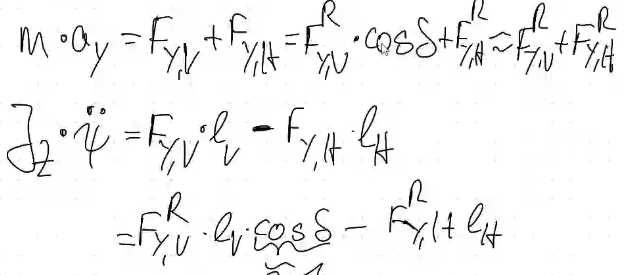 m · a_y = F_{y,V} + F_{y,H} = F_{y,V}^R · cos δ + F_{y,H}^R ≈ F_{y,V}^R + F_{y,H}^R
J_z · ψ̈ = F_{y,V} · l_V - F_{y,H} · l_H
= F_{y,V}^R · l_V · cos δ - F_{y,H}^R l_H